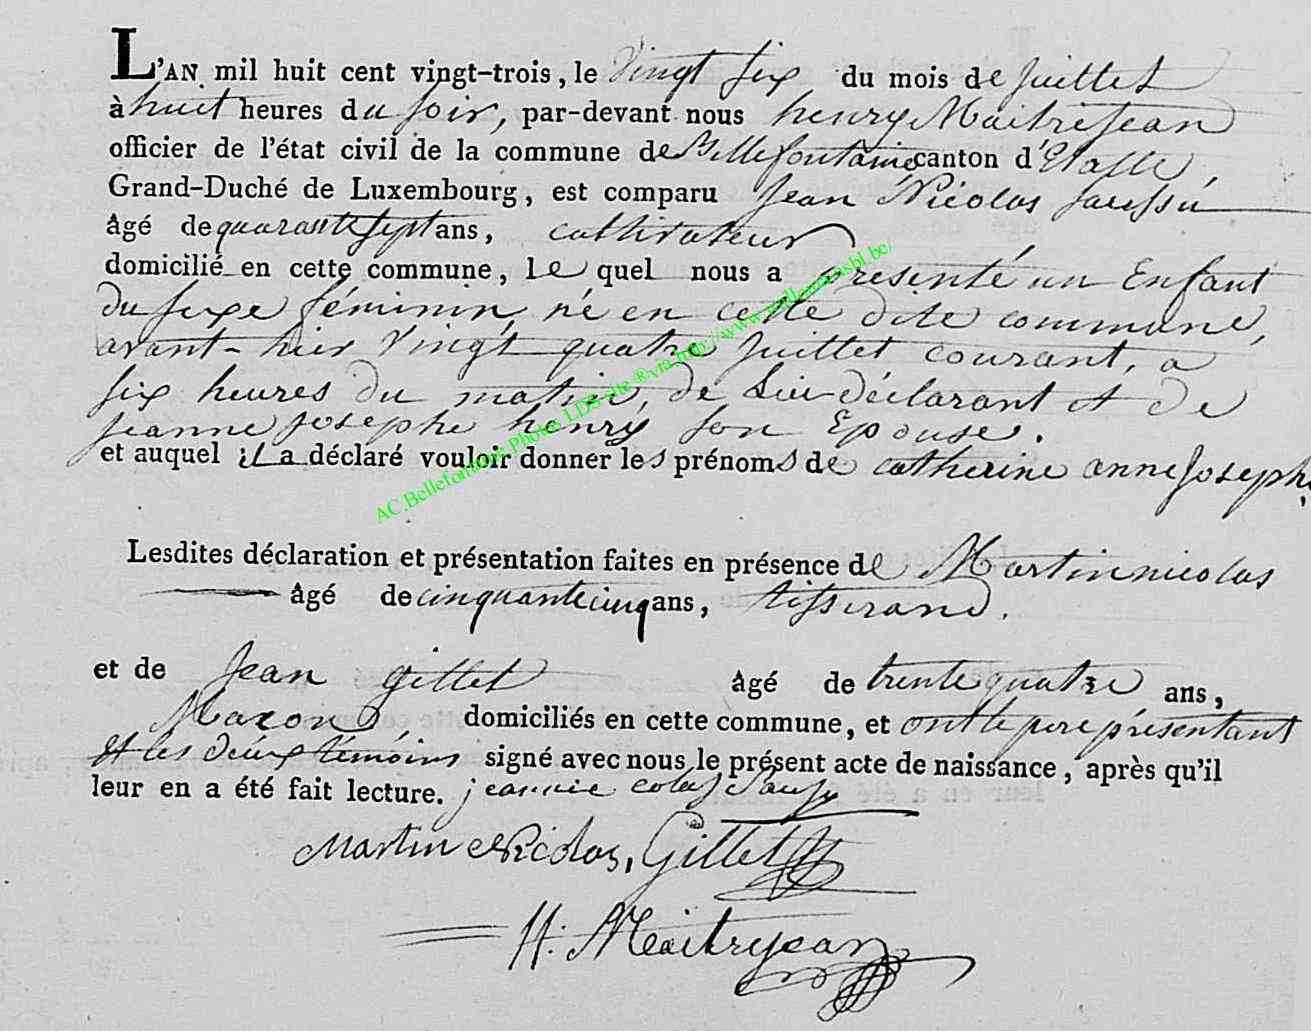 L'AN mil huit cent vingt-trois, le vingt six du mois de juillet
à huit heures du soir, par-devant nous henry Maitrejean
officier de l'état civil de la commune de Bellefontaine canton d'Etalle,
Grand-Duché de Luxembourg, est comparu Jean Nicolas saussu
âgé de quarante sept ans, cultivateur
domicilié en cette commune, le quel nous a présenté un Enfant
du sexe féminin, né en cette dite commune,
avant-hier vingt quatre juillet courant, a
six heures du matin, de lui déclarant et de
jeanne josephe henry son Epouse.
et auquel il a déclaré vouloir donner les prénoms de catherine anne josephe
Lesdites déclaration et présentation faites en présence de Martin nicolas
âgé de cinquante cinq ans, tisserand.
et de Jean gillet âgé de trente quatre ans,
Maçon domiciliés en cette commune, et ont le pere présentant
et les deux témoins signé avec nous le présent acte de naissance, après qu'il
leur en a été fait lecture. jeannie colas
Martin Nicolas, Gillet
H. Maitrejean
AC.Bellefontaine Photos LDS site ® via http://www.